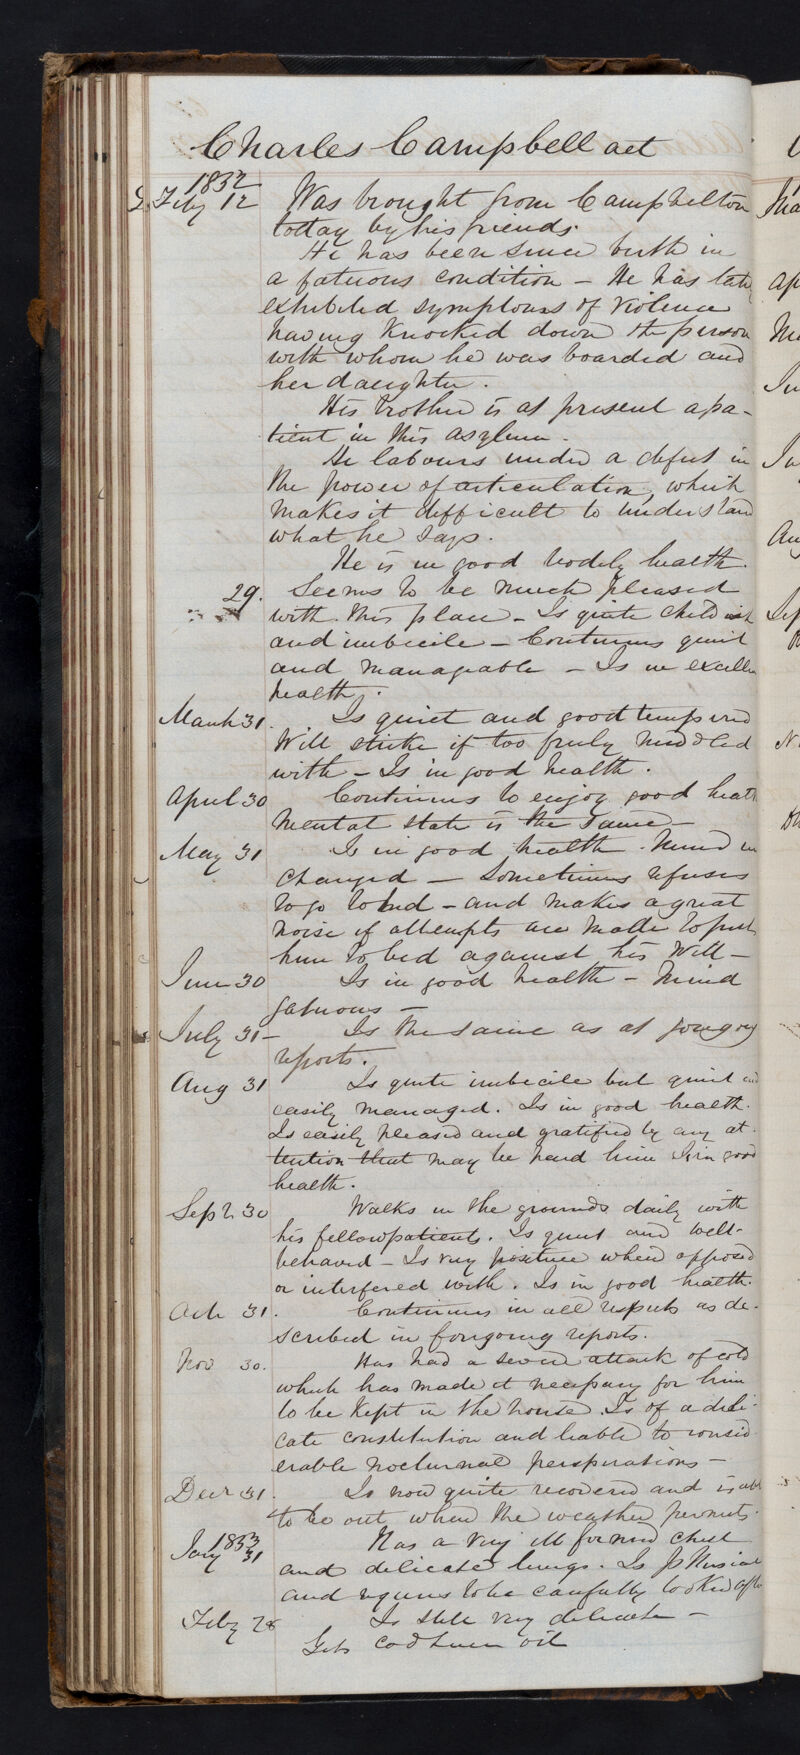 Charles Campbell aet
1852
Feby 12 Was brought from Campbelton
today by his friends.
He has been since birth in
a fatuous condition — He has lately
exhibited symptoms of violence
having knocked down the person
with whom he was boarded and
her daughter.
His brother is at present a pa-
tient in this asylum.
He labours under a defect in
the power of articulation, which
makes it difficult to understand
what he says.
He is in good bodily health.
29. Seems to be much pleased
with this place — Is quite childish
and imbecile — Continues quiet
and manageable — Is in excellen
health.
March 31. Is quiet and good tempered
Will strike if too freely meddled
with — Is in good health.
April 30 Continues to enjoy good healt
mental state is the same —
May 31 Is in good health. Mind un
changed — Sometimes refuses
to go to bed — and makes a great
noise if attempts are made to put
him to bed against his will —
June 30 Is in good health — Mind
fatuous —
July 31 — Is the same as at foregoing
reports.
Aug 31 Is quite imbecile but quiet and
easily managed. Is in good health.
Is easily pleased and gratified by any at-
tention that may be paid him Is in good
health.
Sept 30 Walks in the grounds daily with
his fellow patients. Is quiet and well-
behaved — Is very positive when opposed
or interfered with. Is in good health.
Oct 31. Continues in all respects as de-
scribed in foregoing reports.
Nov 30. Has had a severe attack of cold
which has made it necessary for him
to be kept in the house. Is of a deli-
cate constitution and liable to consid-
erable nocturnal perspirations —
Decr 31. Is now quite recovered and is able
to be out when the weather permits.
1853
Jany 31 Has a very ill formed chest
and delicate lungs. Is phthisical
and requires to be carefully looked after
Feby 28 Is still very delicate —
Gets cod liver oil